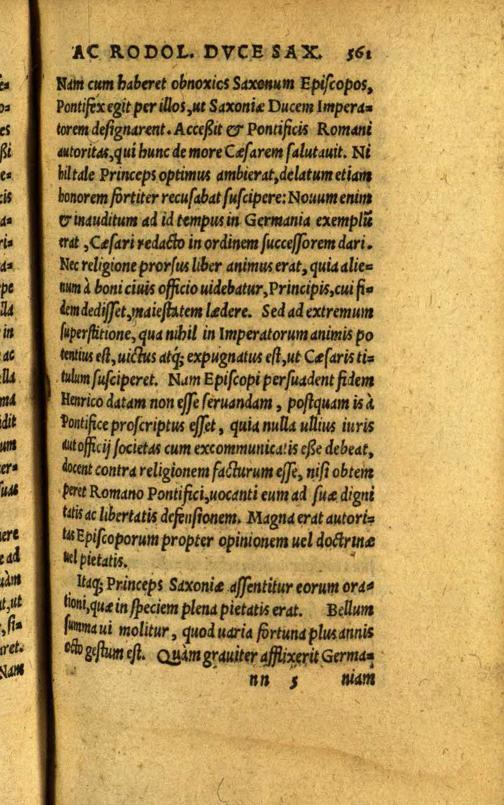 AC RODOL. DVCE SAX. 561
Nam cum haberet obnoxios Saxonum Episcopos,
Pontifex egit per illos, ut Saxoniæ Ducem Impera=
torem designarent. Acceßit & Pontificis Romani
autoritas, qui hunc de more Cæsarem salutauit. Ni
hil tale Princeps optimus ambierat, delatum etiam
honorem fortiter recusabat suscipere: Nouum enim
& inauditum ad id tempus in Germania exemplũ
erat, Cæsari redacto in ordinem successorem dari.
Nec religione prorsus liber animus erat, quia alie=
num à boni ciuis officio uidebatur, Principis, cui fi=
dem dedisset, maiestatem lædere. Sed ad extremum
superstitione, qua nihil in Imperatorum animis po
tentius est, uictus atq; expugnatus est, ut Cæsaris ti=
tulum susciperet. Nam Episcopi persuadent fidem
Henrico datam non esse seruandam, postquam is à
Pontifice proscriptus esset, quia nulla ullius iuris
aut officij societas cum excommunicatis eße debeat,
docent contra religionem facturum esse, nisi obtem
peret Romano Pontifici, uocanti eum ad suæ digni
tatis ac libertatis defensionem. Magna erat autori=
tas Episcoporum propter opinionem uel doctrinæ
uel pietatis.
Itaq; Princeps Saxoniæ assentitur eorum ora=
tioni, quæ in speciem plena pietatis erat. Bellum
summa ui molitur, quod uaria fortuna plus annis
octo gestum est. Quàm grauiter afflixerit Germa=
nn 5 niam